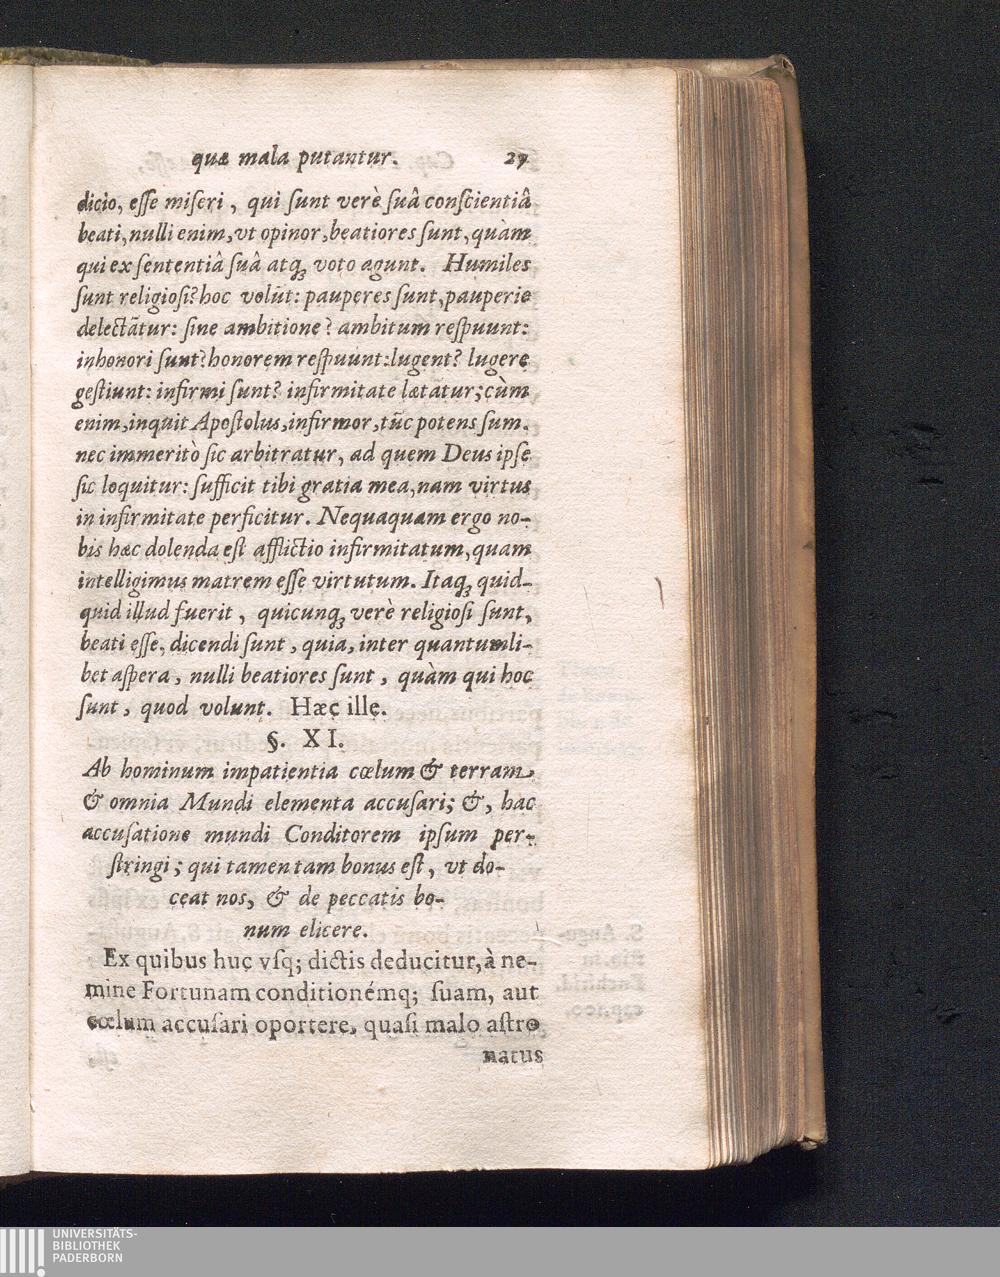 quæ mala putantur. 27
dicio, eſſe miſeri, qui ſunt verè ſuâ conſcientiâ
beati, nulli enim, vt opinor, beatiores ſunt, quàm
qui ex ſententiâ ſuâ atq; voto agunt. Humiles
ſunt religioſi? hoc volũt: pauperes ſunt, pauperie
delectãtur: ſine ambitione? ambitum reſpuunt:
inhonori ſunt? honorem reſpuunt: lugent? lugere
geſtiunt: infirmi ſunt? infirmitate lætãtur; cùm
enim, inquit Apoſtolus, infirmor, tũc potens ſum.
nec immeritò ſic arbitratur, ad quem Deus ipſe
ſic loquitur: ſufficit tibi gratia mea, nam virtus
in infirmitate perficitur. Nequaquam ergo no-
bis hæc dolenda eſt afflictio infirmitatum, quam
intelligimus matrem eſſe virtutum. Itaq; quid-
quid illud fuerit, quicunq; verè religioſi ſunt,
beati eſſe, dicendi ſunt, quia, inter quantumli-
bet aſpera, nulli beatiores ſunt, quàm qui hoc
ſunt, quod volunt. Hæc ille.
§. XI.
Ab hominum impatientia cœlum & terram,
& omnia Mundi elementa accuſari; &, hac
accuſatione mundi Conditorem ipſum per-
ſtringi; qui tamen tam bonus eſt, vt do-
ceat nos, & de peccatis bo-
num elicere.
Ex quibus huc vſq; dictis deducitur, à ne-
mine Fortunam conditionémq; ſuam, aut
cœlum accuſari oportere, quaſi malo aſtro
natus
UNIVERSITÄTS-
BIBLIOTHEK
PADERBORN